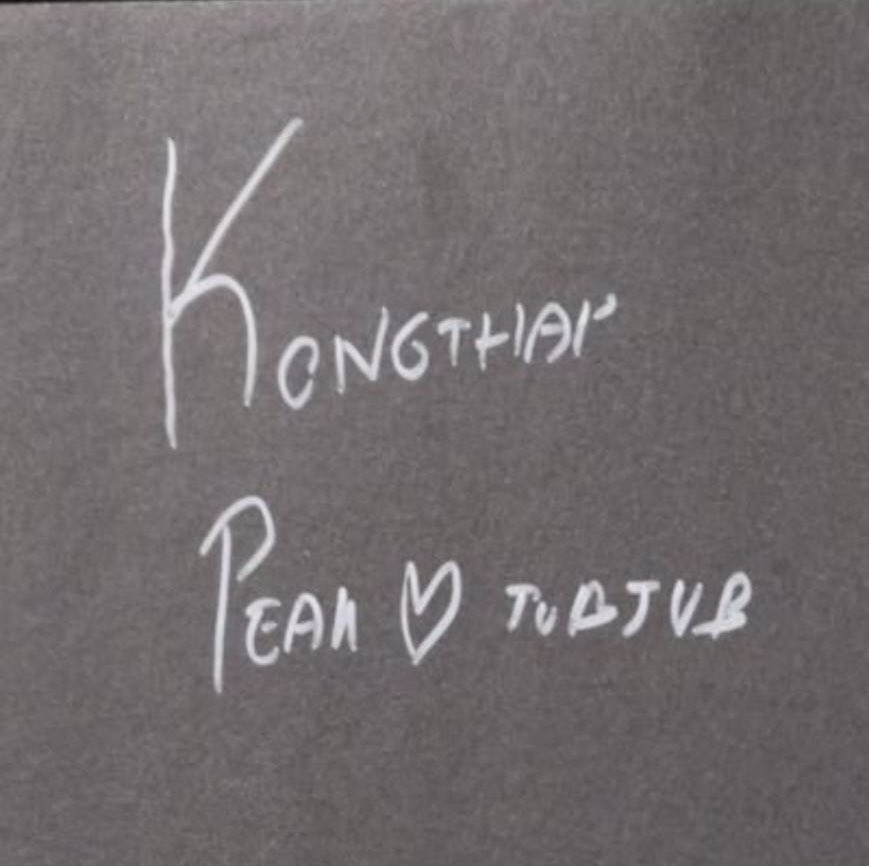 KONGTHAP
PEAK ♡ JUBJUB